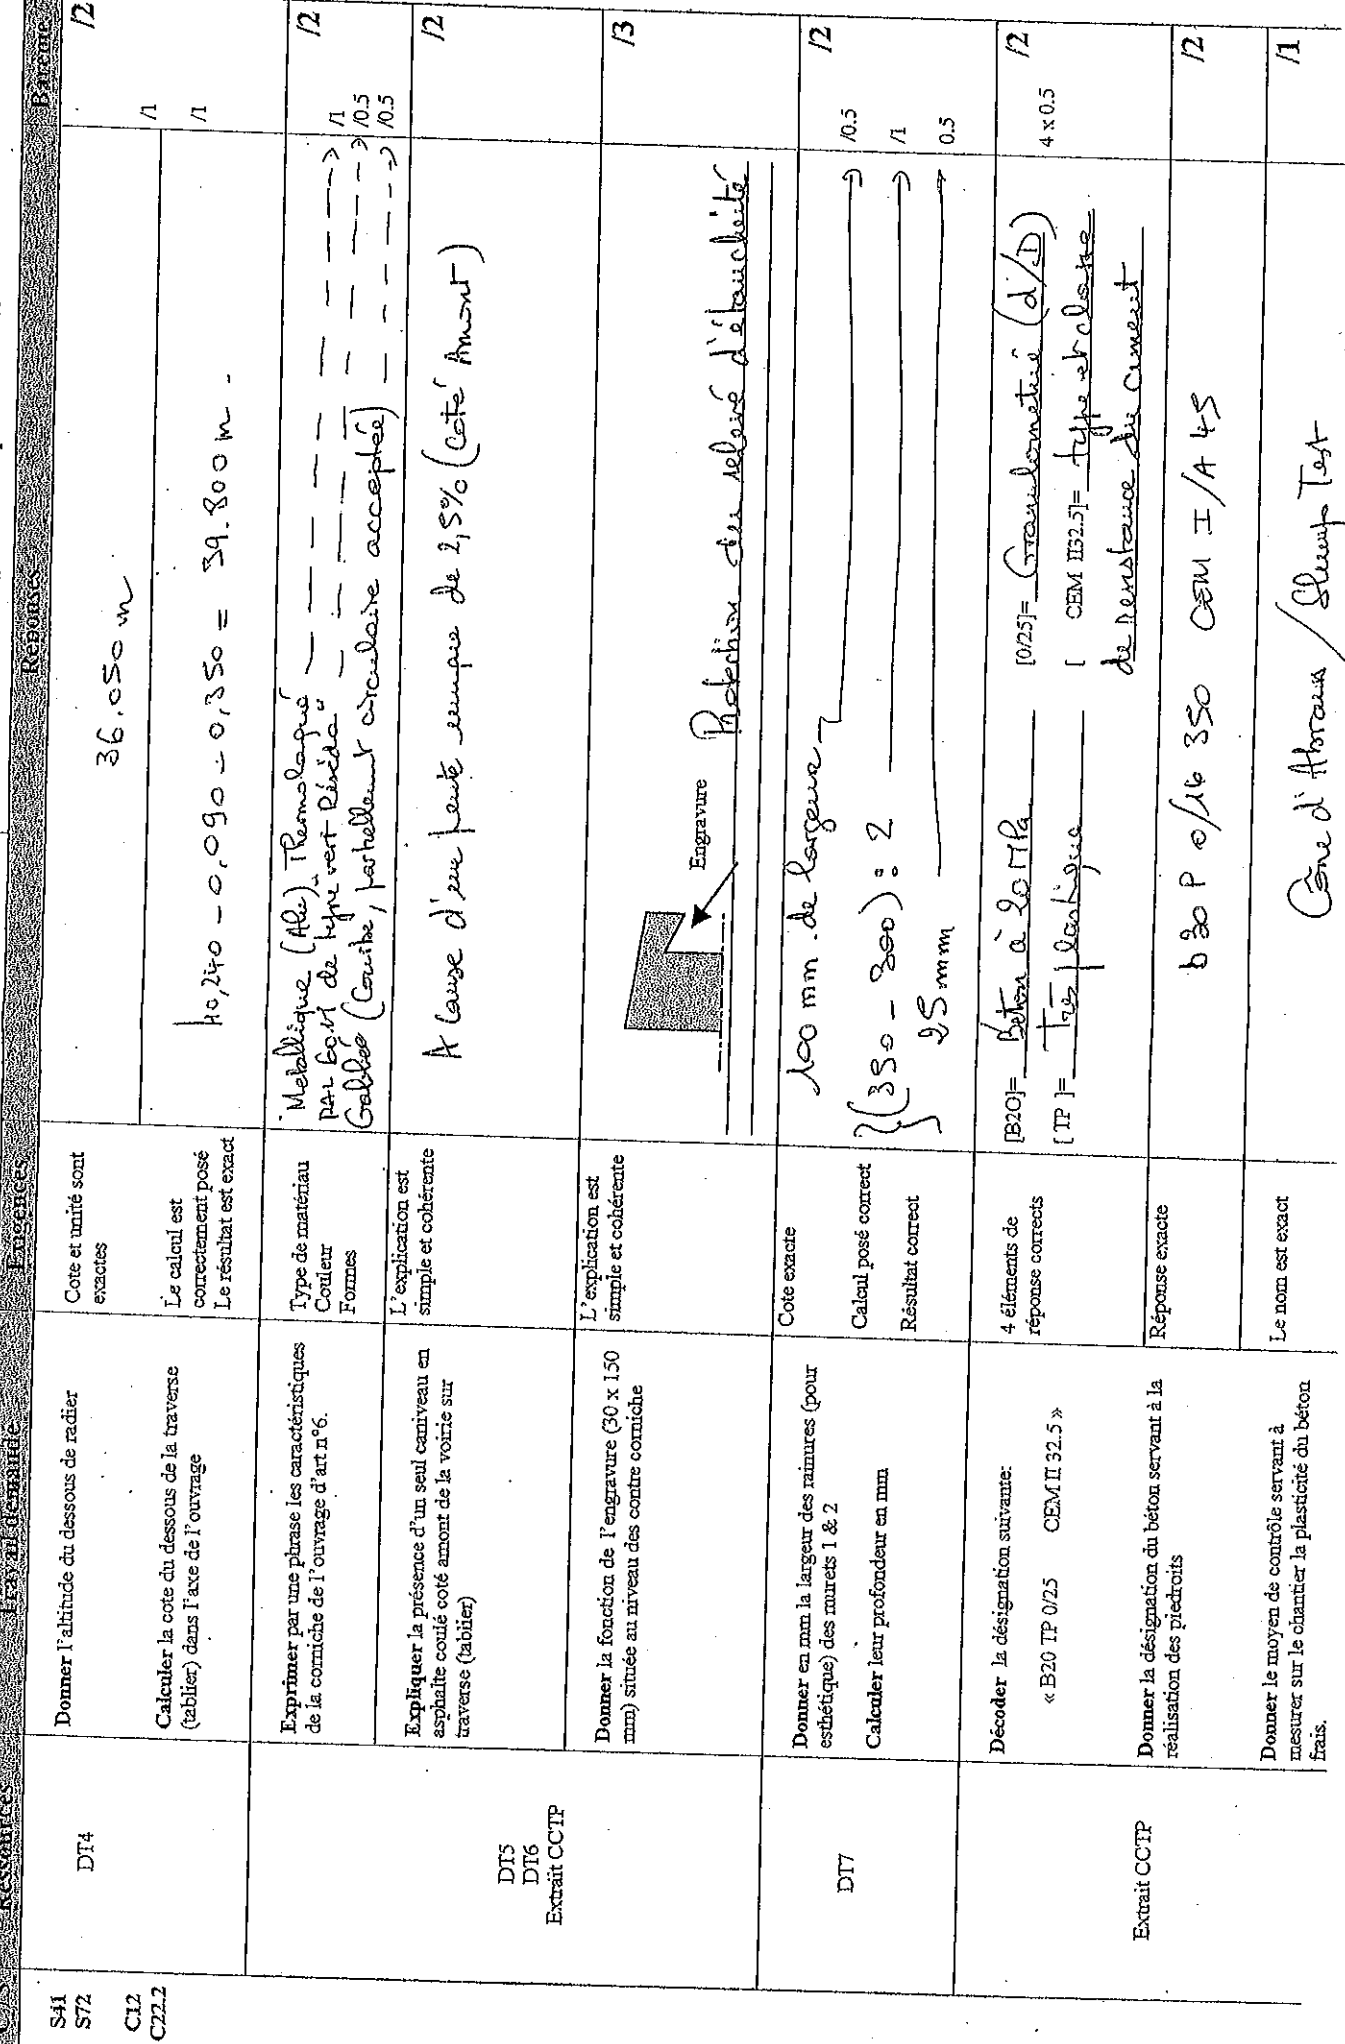 C / S Ressources Travail demandé Exigences Réponses Barème
S41
S72
C12
C22.2
DT4
Donner l'altitude du dessous de radier
Cote et unité sont
exactes
36.050 m
/2
/1
Calculer la cote du dessous de la traverse
(tablier) dans l'axe de l'ouvrage
Le calcul est
correctement posé
Le résultat est exact
40,240 - 0,090 - 0,350 = 39.800 m.
/1
DT5
DT6
Extrait CCTP
Exprimer par une phrase les caractéristiques
de la corniche de l'ouvrage d'art n°6.
Type de matériau
Couleur
Formes
Métallique (Alu). Thermolaqué
RAL 60.11 de type vert Réséda
Galbée (Courbe, partiellement circulaire acceptée)
/2
/1
/0.5
/0.5
Expliquer la présence d'un seul caniveau en
asphalte coulé coté amont de la voirie sur
traverse (tablier)
L'explication est
simple et cohérente
A cause d'une pente unique de 2,5% (Coté Amont)
/2
Donner la fonction de l'engravure (30 x 150
mm) située au niveau des contre corniche
L'explication est
simple et cohérente
Engravure
Protection du relevé d'étanchéité
/3
DT7
Donner en mm la largeur des rainures (pour
esthétique) des murets 1 & 2
Cote exacte
100 mm de largeur
/2
/0.5
Calculer leur profondeur en mm
Calcul posé correct
(350 - 300) : 2
/1
Résultat correct
25 mm
0.5
Extrait CCTP
Décoder la désignation suivante:
« B20 TP 0/25 CEM II 32.5 »
4 éléments de
réponse corrects
[B20]= Béton à 20 MPa [0/25]= Granulométrie (d/D)
[ TP ]= Très plastique [ CEM II32.5]= type et classe
de resistance du ciment
/2
4 x 0.5
Donner la désignation du béton servant à la
réalisation des piedroits
Réponse exacte
b30 P 0/16 350 CEM I/A 45
/2
Donner le moyen de contrôle servant à
mesurer sur le chantier la plasticité du béton
frais.
Le nom est exact
Cône d'Abrams / Slump Test
/1